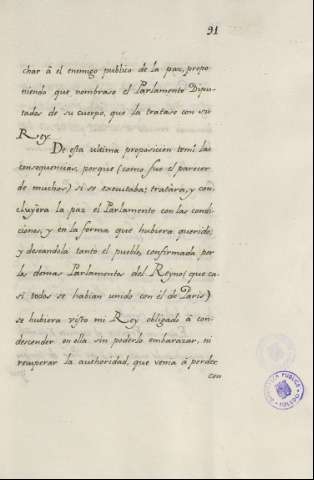 91
char â el enemigo publico de la paz, propo
niendo que nombrase el Parlamento Dipu-
tados de su cuerpo, que la tratase con su
Rey.
De esta ultima proposicion temi las
consequencias, porque (como fue el parecer
de muchos) si se executaba; tratára, y con-
cluyera la paz el Parlamento con las condi-
ciones, y en la forma que hubiera querido;
y deseandola tanto el pueblo, confirmada por
los demas Parlamentos del Reyno (que ca-
si todos se habian unido con él de Paris)
se hubiera visto mi Rey obligado â con-
descender en ella sin poderlo embarazar, ni
recuperar la authoridad, que venia â perder
con